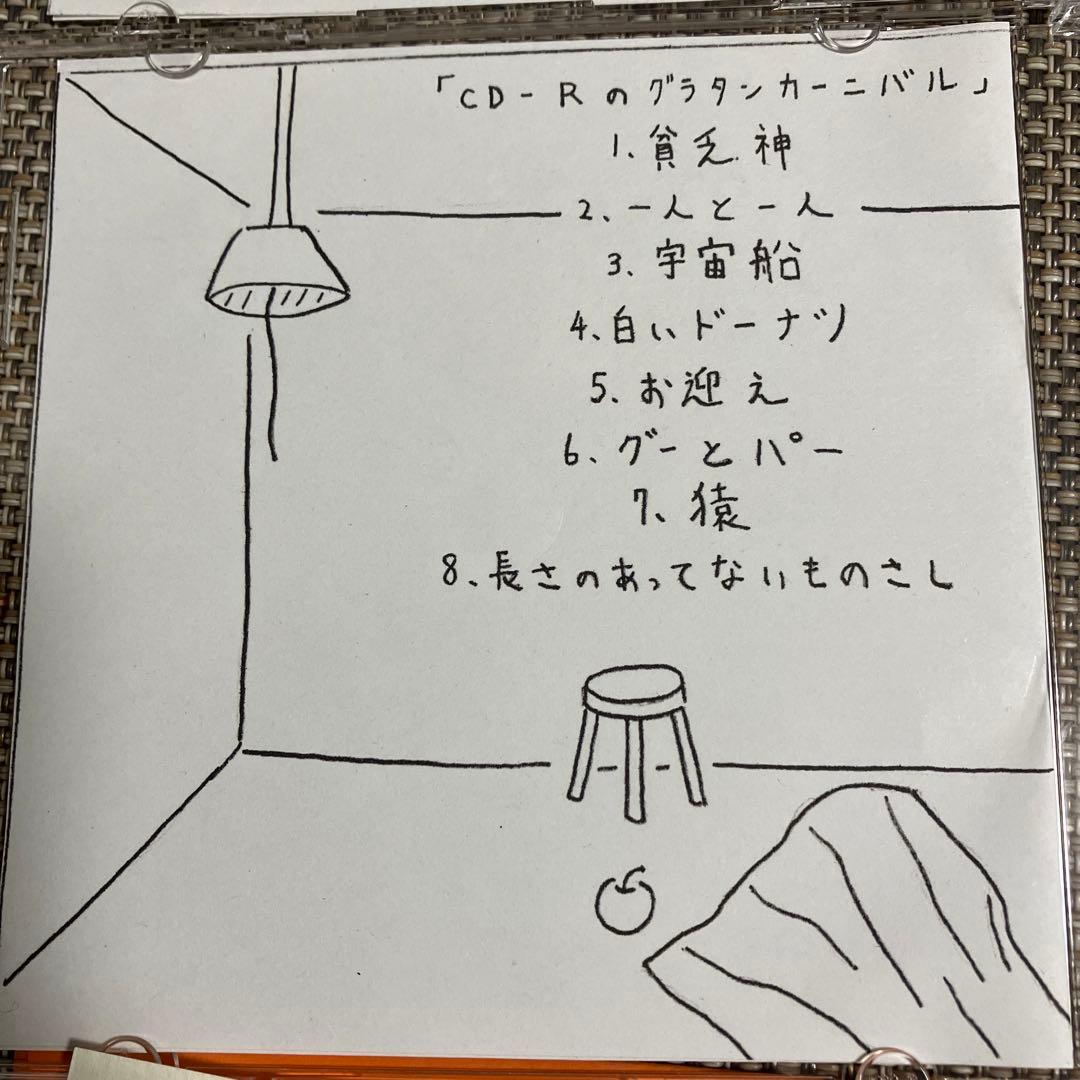 「CD-Rのグラタンカーニバル」
1、貧乏神
2、一人と一人
3、宇宙船
4、白いドーナツ
5、お迎え
6、グーとパー
7、猿
8、長さのあってないものさし